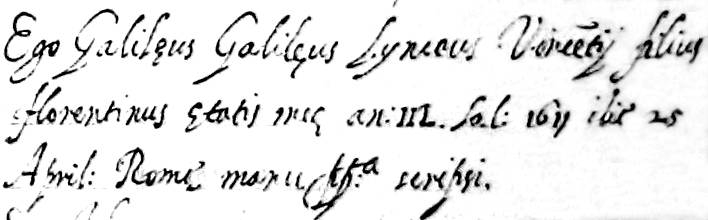 Ego Galilęus Galilęus Lynceus Vincẽtij filius
florentinus ętatis meę an: IIIL. Sal: 1611 die 25
April: Romę manu pp:ª scripsi.